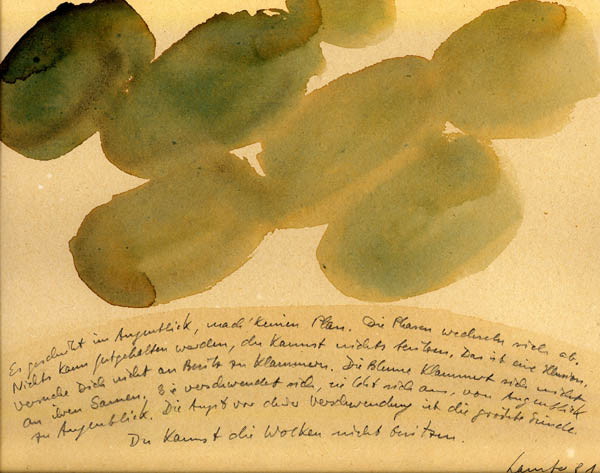 Es geschieht im Augenblick, mach' keinen Plan. Die Phasen wechseln sich ab.
Nichts kann festgehalten werden, du kannst nichts besitzen. Das ist eine Illusion,
versuche Dich nicht an Besitz zu klammern. Die Blume klammert sich nicht
an ihren Samen, sie verschwendet sich, sie lebt sich aus, von Augenblick
zu Augenblick. Die Angst vor dieser Verschwendung ist die größte Sünde.
Du kannst die Wolken nicht besitzen.